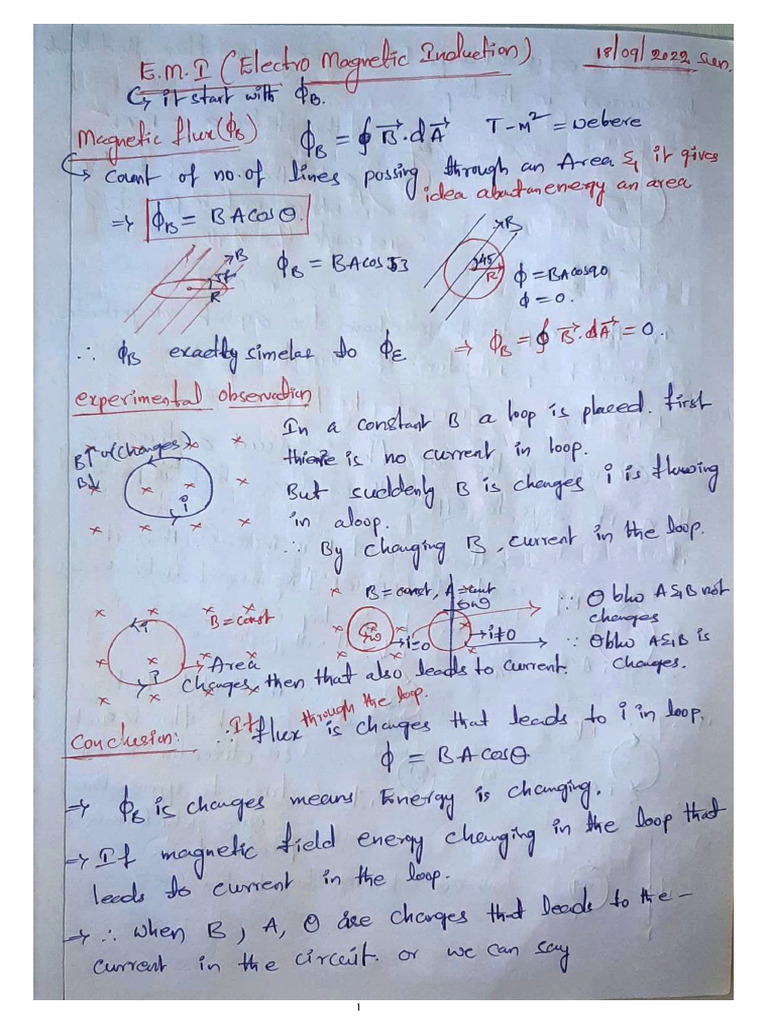 E.M.I (Electro Magnetic Induction)
18/09/2022 Sun.
↳ it start with ϕB.
Magnetic flux(ϕB)
ϕB = ∮ B⃗.dA⃗ T-m² = webere
↳ Count of no.of lines possing through an Area & it gives
idea about an energy an area
⇒ ϕB = BA cosθ.
B
R
ϕB = BA cos 53
B
45
R
ϕ = BA cos90
ϕ = 0.
∴ ϕB exactly similar to ϕE ⇒ ϕB = ∮ B⃗.dA⃗ = 0.
experimental observation
B↑ or (changes)
B↓
i
In a constant B a loop is placed. first
there is no current in loop.
But suddenly B is changes i is flowing
in a loop.
∴ By changing B, current in the loop.
B = const
i
i
→ Area
changes, then that also leads to current.
B = const, A = const
ω
i=0
i≠0
∵ θ bho A & B not
changes
∵ θ bho A & B is
changes.
Conclusion: ∴ If flux through the loop. is changes that leads to i in loop.
ϕ = BA cosθ
⇒ ϕB is changes means Energy is changing.
→ If magnetic field energy changing in the loop that
leads to current in the loop.
→ ∴ when B, A, θ are changes that leads to the -
current in the circuit. or we can say
1